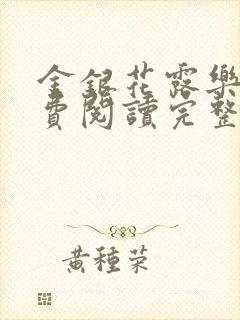 金銀花露樂
費閱讀完整
黃種荣